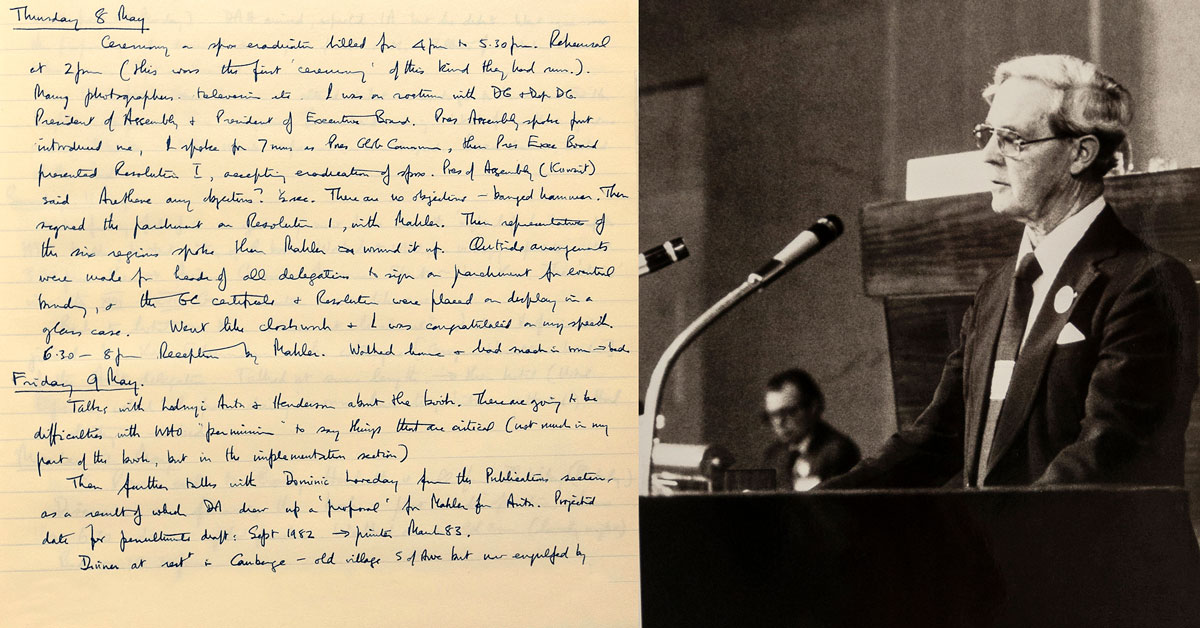 Thursday 8 May
Ceremony on spox eradication billed for 4pm to 5.30pm. Rehearsal
at 2pm (this was the first 'ceremony' of this kind they had run.).
Many photographers. television etc. I was on rostrum with DG + Dep. DG.
President of Assembly + President of Executive Board. Pres Assembly spoke first
introduced me, I spoke for 7 mins as Pres Glob Comm, then Pres Exec Board
presented Resolution I, accepting eradication of spox. Pres of Assembly (Kuwait)
said Are there any objections? ½ sec. There are no objections – banged hammer. Then
signed the parchment on Resolution 1, with Mahler. Then representatives of
the six regions spoke then Mahler wound it up. Outside arrangements
were made for heads of all delegations to sign on parchment for eventual
binding, + the GC certificate + Resolution were placed on display in a
glass case. Went like clockwork + I was congratulated on my speech.
6.30 – 8pm Reception by Mahler. Walked home + had snack in room → bed
Friday 9 May.
Talks with Ladnyi Arita + Henderson about the book. There are going to be
difficulties with WHO "permission" to say things that are critical (not much in my
part of the book, but in the implementation section)
Then further talks with Dominic Loveday from the Publications section,
as a result of which DA drew up a 'proposal' for Mahler from Arita. Projected
date for penultimate draft: Sept 1982 → printer March 83.
Dinner at rest in – old village S of Arve but now engulfed by